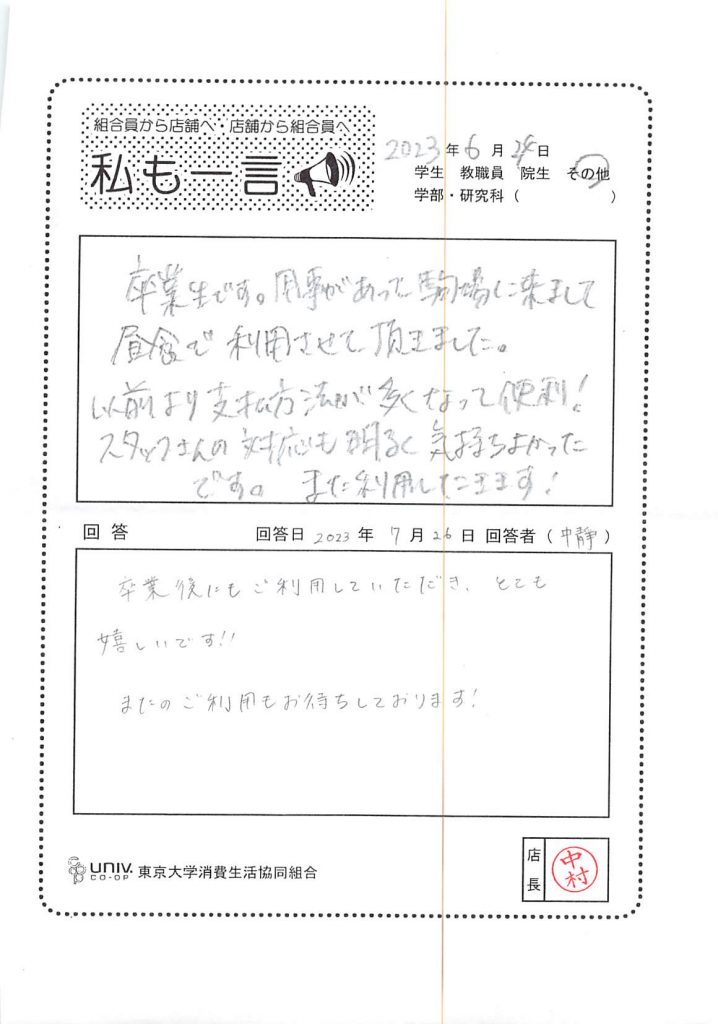 組合員から店舗へ・店舗から組合員へ
私も一言
2023年6月24日
学生 教職員 院生 その他
学部・研究科( )
卒業生です。用事があって駒場に来まして
昼食で利用させて頂きました。
以前より支払方法が多くなって便利!
スタッフさんの対応も明るく気持ちよかった
です。また利用したこます!
回答 回答日 2023年7月26日 回答者(中静)
卒業後にもご利用していただき、とても
嬉しいです!!
またのご利用もお待ちしております!
UNIV. CO-OP 東京大学消費生活協同組合
店長
中村